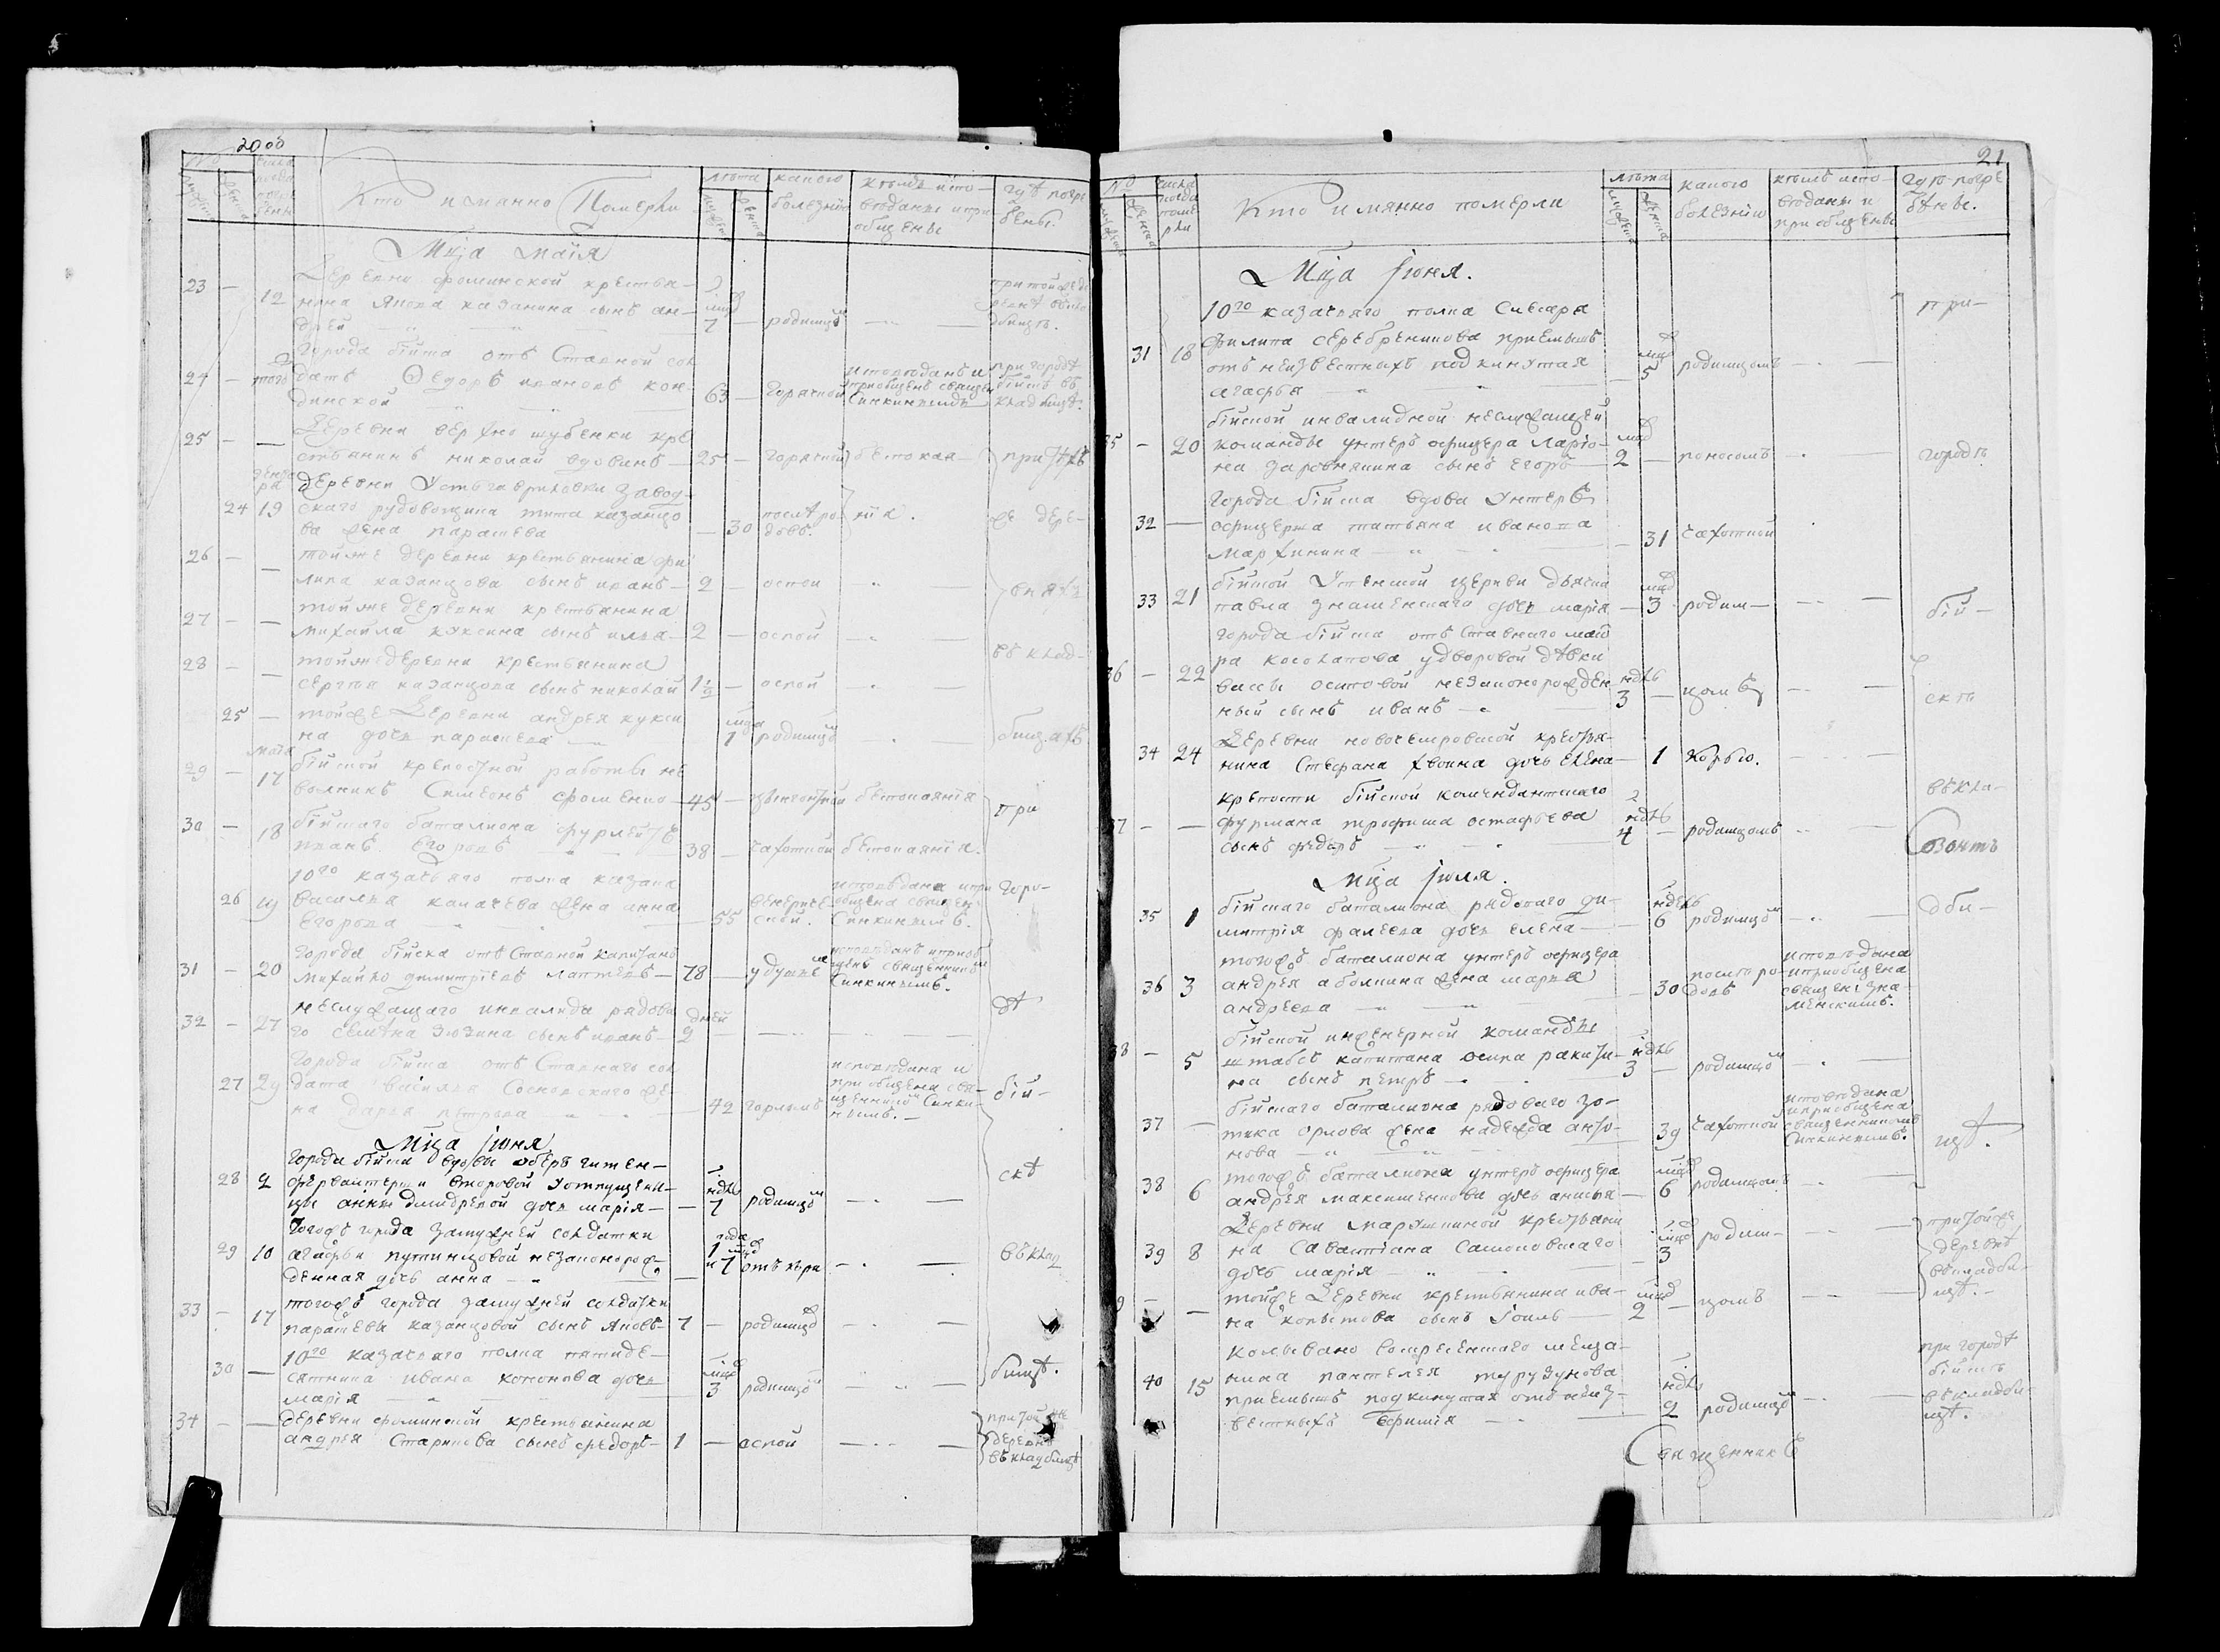 20об
№
Кто имянно Померли
лѣта
какою болезнію
кѣмъ испо-
вѣданы и при
общены
гдѣ погре
бены.
Мца маия
23 — 12 Деревни фоминской крестья-
нина Якова казанина сынъ ан-
дрей — 7 — родимцом —
при той же де
ревнѣ в кла
дбищѣ.
Города бійска отъ Ставной сол
24 — того датъ Ѳедоръ ивановъ кон-
динской 63 — горячкой
исповѣданъ и
приобщенъ священ
Синкинымъ
при городѣ
бійскѣ въ
кладбищѣ.
Деревни верхно шубенки кре
25 — — стьянинъ николай вдовинъ — 25 — горячкой без покая —
при тѣхъ
деревни Усть гавриловки завод-
24 19 скаго рудовощика тита казанцо
ва жена парасковья — 30 послѣ ро-
довъ. нія.
же дере-
26 — — той же деревни крестьянина фи
липа казанцова сынъ иванъ — 2 — оспой —
вняхъ
27 — — той же деревни крестьянина
михайла куксина сынъ илья — 2 — оспой —
въ клад-
28 — — той же деревни крестьянина
сергѣя казанцова сынъ николай 1½ — оспой —
25 — той же Деревни андрея кукси
на дочь парасковья — мца 1 родимцом —
бищахъ
маія
29 — 17 бійской крепостной работы не
вольникъ Симеонъ фоменко — 45 — цынготной без покаянія
при
30 — 18 бійскаго баталиона фурлейтъ
иванъ Егоровъ 38 — чахоткой без покаянія.
10го казачьяго полка казака
26 19 василья калачева жена анна
Егорова — 55 венериче
ской.
исповѣдана и при
общена священ
Синкинымъ.
горо-
Города бійска отъ Ставной капитанъ
31 — 20 михайло димитріевъ лаптевъ — 78 — удушьем
исповѣданъ и приоб
щенъ священником
Синкинымъ.
неслужащаго инвалида рядова
32 — 27 го семена зюзина сынъ иванъ — дней 2 — —
дѣ
Города бійска отъ Ставнаго сол
27 29 дата василья Сосновскаго же-
на дарья петрова — 42 горломъ
исповѣдана и
приобщена свя-
щенником Синки-
нымъ. —
бій-
Мца іюня
города бійска вдовы оберъ гитен-
28 2 фервалтерши второвой Уотпущенни-
цы анны дмидревой дочь марія — ндль 7 родимцом —
скѣ
Тогожъ города замужней солдатки
29 10 агафьи путинцовой незаконорож-
денная дочь анна — года 1 мцов и 7 отъ кори —
въ клад
33 — 17 тогожъ города замужней солдатки
парасковьи казанцовой сынъ Яковъ — 7 — родимцом —
30 — 10го казачьяго полка пятиде-
сятника ивана кононова дочь
марія — мцов 3 родимцом —
бищѣ.
34 — — деревни фоминской крестьянина
андрея Старикова сынъ федоръ — 1 — оспой —
при той же
деревнѣ
въ кладбищѣ
21
№
числа
когда
поме
рли
Кто имянно померли
лѣта
какою
болезніи
кѣмъ испо-
вѣданы и
приобщены
гдѣ погре
бены.
Мца іюня.
10го казачьяго полка Сиесара
31 18 филипа серебреникова приемышъ
отъ неизвестныхъ подкинутая
агафья — мцов 5 родимцомъ —
при-
бійской инвалидной неслужащей
35 — 20 команды унтеръ офицера Ларіо-
на заровнянина сынъ Егоръ — мцов 2 — поносомъ —
городѣ
города бійска вдова унтеръ
32 — офицерша татьяна иванова
мархинина — 31 чахоткой
33 21 бійской Успенской церкви дьячка
павла знаменскаго дочь марія — мцов 3 родим —
бій-
города бійска отъ Ставнаго маіо
36 — 22 ра косолапова у дворовой дѣвки
вассы осиповой незаконорожден
ный сынъ иванъ — ндль 3 —
скѣ
34 24 Деревни новочемровской крестья-
нина Стефана хвоина дочь Елена — 1 корью.
крепости бійской комендантскаго
37 — — фурмана трофима остафьева
сынъ федоръ — ндль 4 — родимцомъ —
въ кла-
Мца іюля.
35 1 бійскаго баталиона рядоваго ди-
митрія фалеева дочь елена — ндель 6 родимцом —
дби-
тогожъ баталиона унтеръ офицера
36 3 андрея аболнина жена марья
андреева — 30 послѣ ро-
довъ
исповѣдана
и приобщена
священ: зна-
менскимъ.
бійской инженерной команды
38 — 5 штабсъ капитана осипа ракити-
на сынъ петръ — ндль 3 — родимцом —
бійскаго баталиона рядоваго зо-
37 — тика орлова жена надежда анто-
нова — 39 чахоткой
исповѣдана
и приобщена
священникомъ
Синкинымъ.
щѣ.
38 6 тогожъ баталиона унтеръ офицера
андрея максименкова дочь анисья — мцов 6 родимцом —
Деревни Марушкиной крестьяни
39 8 на Саватіана Самоповскаго
дочь марія — мцов 3 родим —
при той же
деревнѣ
въ кладби-
щѣ. —
— — той же Деревни крестьянина ива-
на копытова сынъ Іоиль — мцов 2 —
колывано воскресенскаго меща-
40 15 нина пантелея турузунова
приемышъ подкинутая отъ неиз-
вестныхъ Ефимія — ндль 2 родимцом —
при городѣ
бійскѣ
въ кладби-
щѣ.
Священникъ